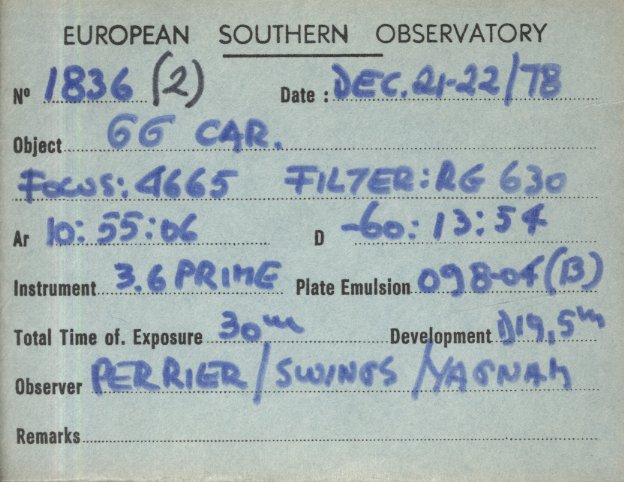 EUROPEAN SOUTHERN OBSERVATORY
Nº 1836 (2) Date : DEC. 21-22/78
Object GG CAR.
FOCUS: 4665 FILTER: RG 630
Ar 10:55:06 D -60:13:54
Instrument 3.6 PRIME Plate Emulsion 098-04 (B)
Total Time of. Exposure 30m Development D19, 5m
Observer PERRIER/SWINGS
Remarks